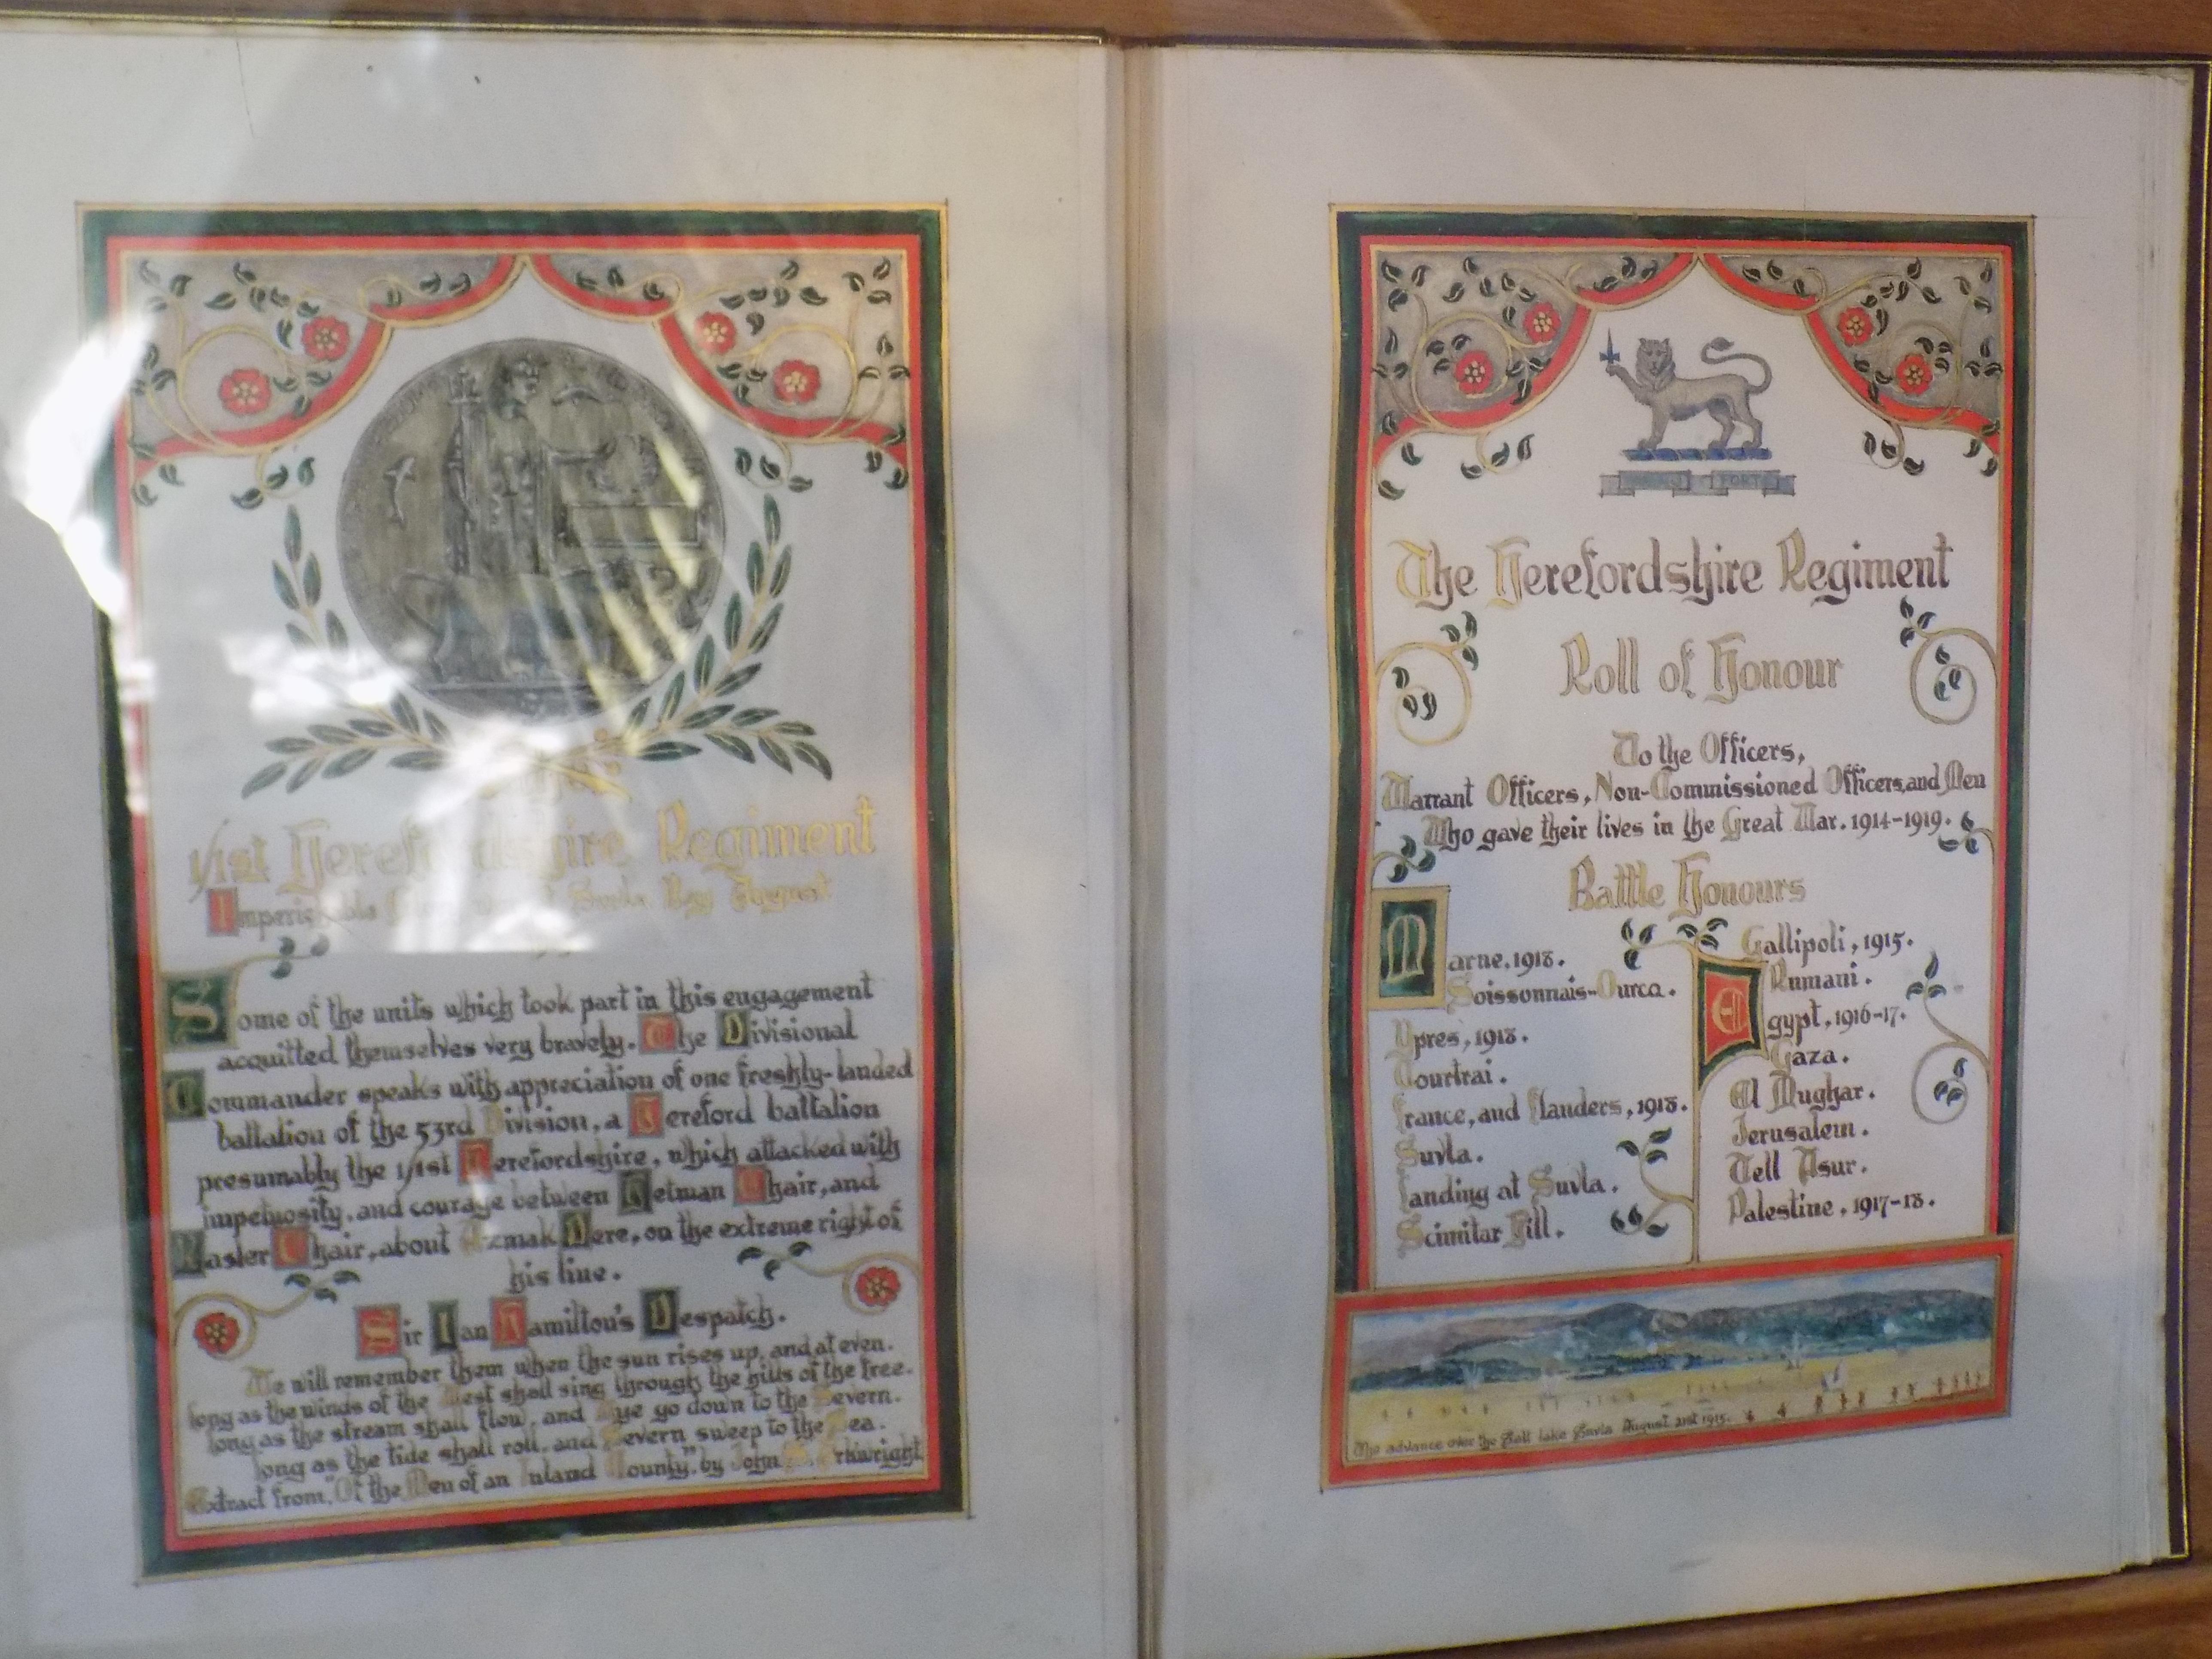 1/1st Herefordshire Regiment
Suvla Bay August
Some of the units which took part in this engagement
acquitted themselves very bravely. The Divisional
Commander speaks with appreciation of one freshly-landed
battalion of the 53rd Division, a Hereford battalion
presumably the 1/1st Herefordshire, which attacked with
impetuosity, and courage between Hetman Chair, and
Kaslar Chair, about Azmak Dere, on the extreme right of
his line.
Sir Ian Hamilton's Despatch.
We will remember them when the sun rises up, and at even.
long as the winds of the West shall sing through the hills of the free.
long as the stream shall flow, and Wye go down to the Severn.
long as the tide shall roll, and Severn sweep to the Sea.
Extract from, "Of the Men of an Inland County", by John S. Arkwright
The Herefordshire Regiment
Roll of Honour
To the Officers,
Warrant Officers, Non-Commissioned Officers, and Men
Who gave their lives in the Great War. 1914-1919.
Battle Honours
Marne, 1918.
Soissonnais-Ourcq.
Ypres, 1918.
Courtrai.
France, and Flanders, 1918.
Suvla.
Landing at Suvla.
Scimitar Hill.
Gallipoli, 1915.
Rumani.
Egypt, 1916-17.
Gaza.
El Mughar.
Jerusalem.
Tell Asur.
Palestine, 1917-18.
The advance over the Salt lake Suvla August 21st 1915.